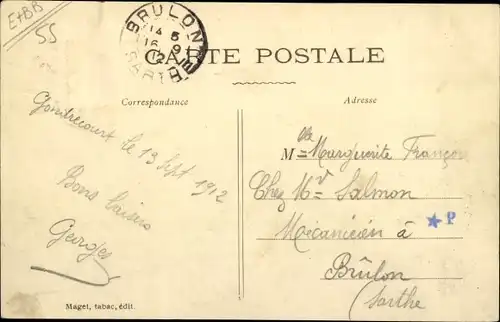 E+BB
55
BRULON
14 5
16 9
12
SARTHE
CARTE POSTALE
Correspondance
Adresse
Gondrecourt le 13 Sept 1912
Bons baisers
Georges
Mlle Marguerite François
Chez Mr Salmon
Mécanicien à
Brûlon
Sarthe
★ P
Maget, tabac, édit.